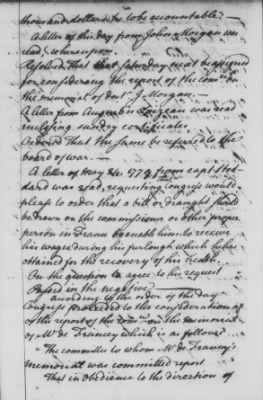 thousand dollars for to be accountable —
A letter of this day from John Morgan was
read, whereupon
Resolved, That that saturday next be assigned
for considering the report of the comee on
the memorial of doctr J Morgan. —
A letter from Augustin was read
inclosing sundry certificates
Ordered That the same be referred to the
board of war. —
A letter of May 24. 1779 from capt Stod-
dard was read, requesting Congress would
please to order that a bill or draught should
be drawn on the commissioners or other proper
person in France to enable him to receive
his wages during his furlough which he has
obtained for the recovery of his health
On the question to agree to his request
Passed in the negative
according to the order of the day
Congress proceeded to the consideration
of the report of the comee on the memorial
of Mr de Francy which is as follows
"The committee to whom Mr de Francy's
memorial was committed report
That in obedience to the direction of